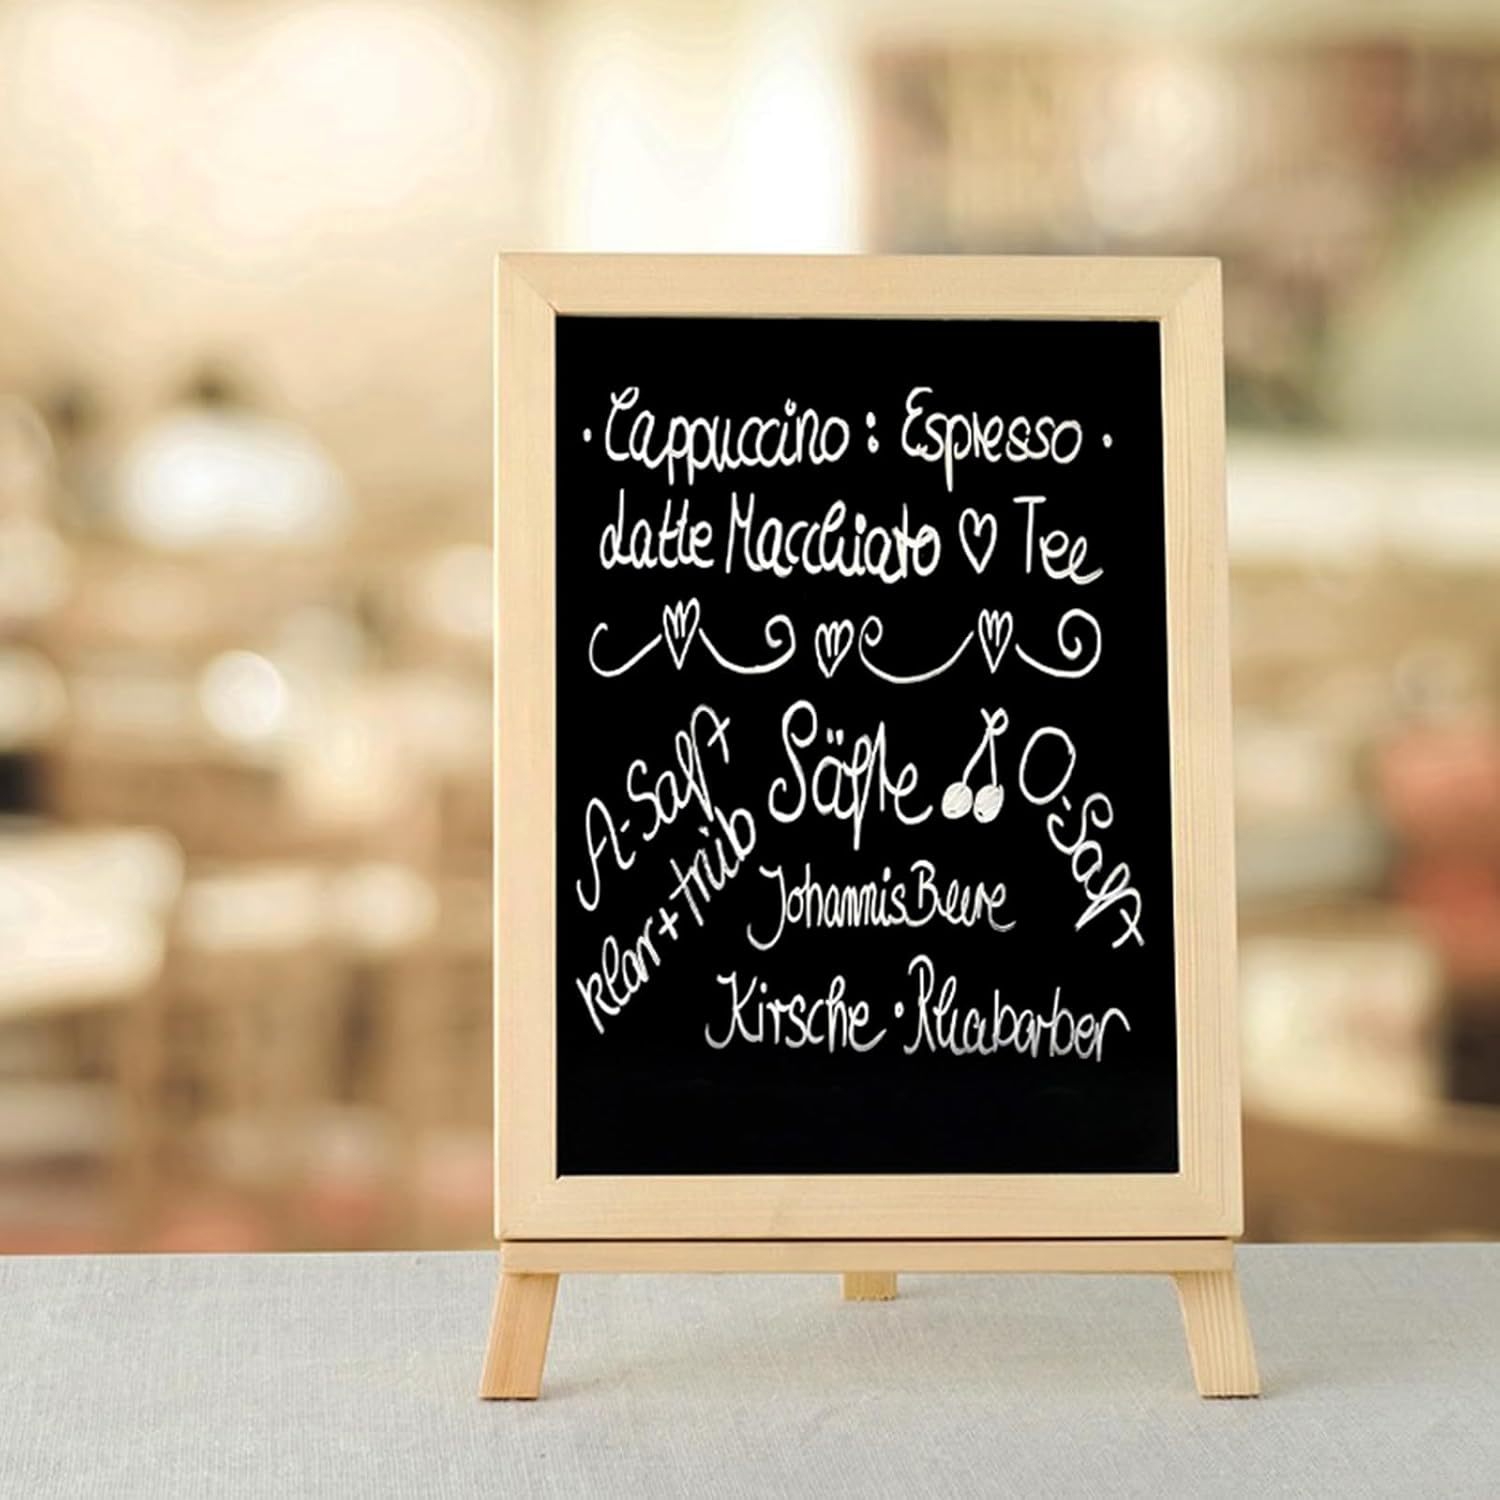 · Cappuccino : Espresso ·
Latte Macchiato ♡ Tee
A-Saft
klar + trüb
Säfte
O-Saft
JohannisBeere
Kirsche · Rhabarber